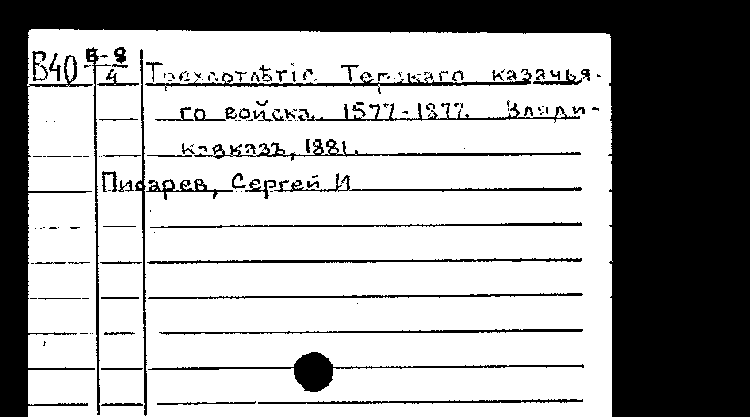 В40 Б-9/4 Трехсотлѣтіе Терскаго казачья-
го войска. 1577-1877. Влади-
кавказъ, 1881.
Писарев, Сергей И